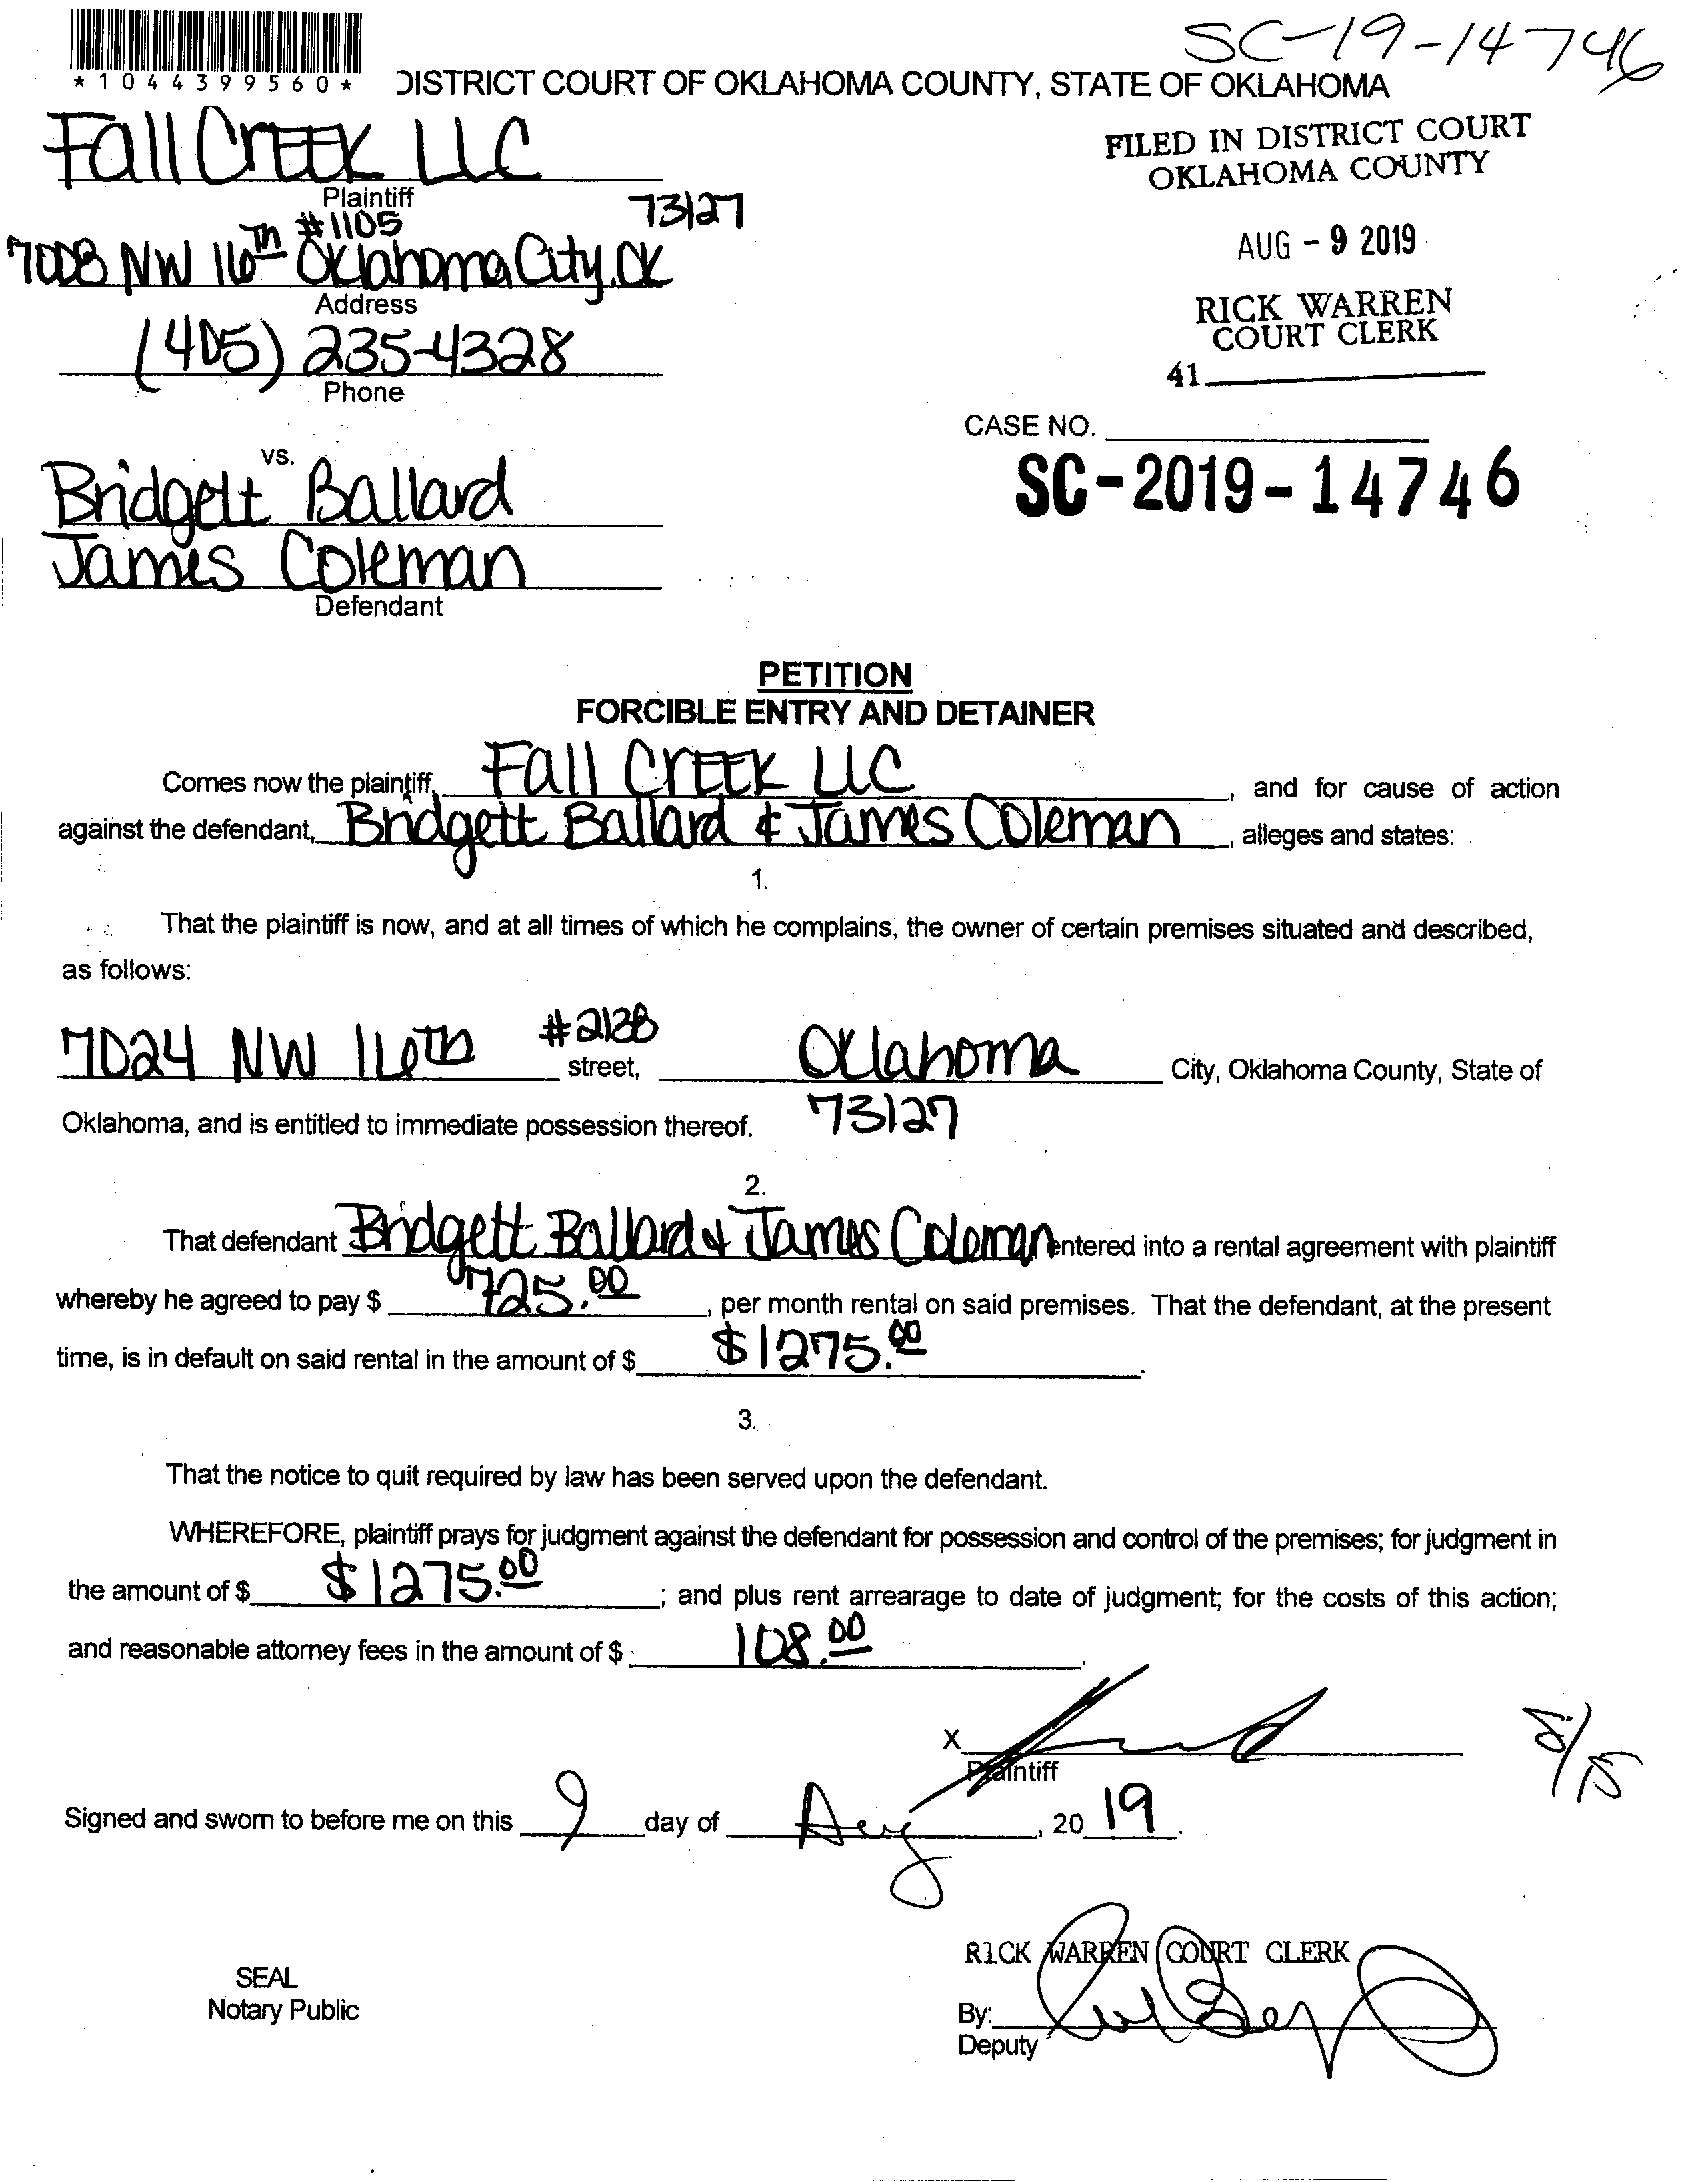 SC-19-14746
*1044399560*
DISTRICT COURT OF OKLAHOMA COUNTY, STATE OF OKLAHOMA
Fall Creek LLC
Plaintiff
FILED IN DISTRICT COURT
OKLAHOMA COUNTY
#1105 73127
7008 NW 16th Oklahoma City, OK
Address
AUG - 9 2019
(405) 235-4328
Phone
RICK WARREN
COURT CLERK
41
CASE NO.
SC-2019-14746
vs.
Bridgett Ballard
James Coleman
Defendant
PETITION
FORCIBLE ENTRY AND DETAINER
Comes now the plaintiff, Fall Creek LLC, and for cause of action
against the defendant, Bridgett Ballard & James Coleman, alleges and states:
1.
That the plaintiff is now, and at all times of which he complains, the owner of certain premises situated and described,
as follows:
7024 NW 16th #2138 street, Oklahoma City, Oklahoma County, State of
Oklahoma, and is entitled to immediate possession thereof. 73127
2.
That defendant Bridgett Ballard & James Coleman entered into a rental agreement with plaintiff
whereby he agreed to pay $ 725.00, per month rental on said premises. That the defendant, at the present
time, is in default on said rental in the amount of $ $1275.00.
3.
That the notice to quit required by law has been served upon the defendant.
WHEREFORE, plaintiff prays for judgment against the defendant for possession and control of the premises; for judgment in
the amount of $ $1275.00; and plus rent arrearage to date of judgment; for the costs of this action;
and reasonable attorney fees in the amount of $ 108.00.
X
Plaintiff
Signed and sworn to before me on this 9 day of Aug, 2019.
RICK WARREN COURT CLERK
SEAL
Notary Public
By:
Deputy